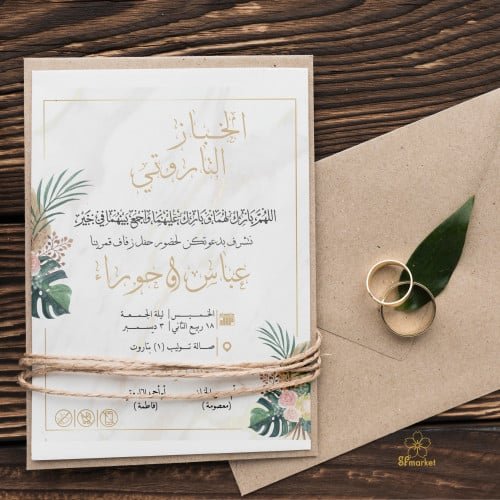 الخباز
التاروتي
اللهم بارك لهما وبارك عليهما واجمع بينهما في خير
نتشرف بدعوتكن لحضور حفل زفاف قمرينا
عباس & حوراء
الخميس | ليلة الجمعة
١٨ ربيع الثاني | ٣ ديسمبر
صالة توليب (١) تاروت
(معصومة) (فاطمة)
market